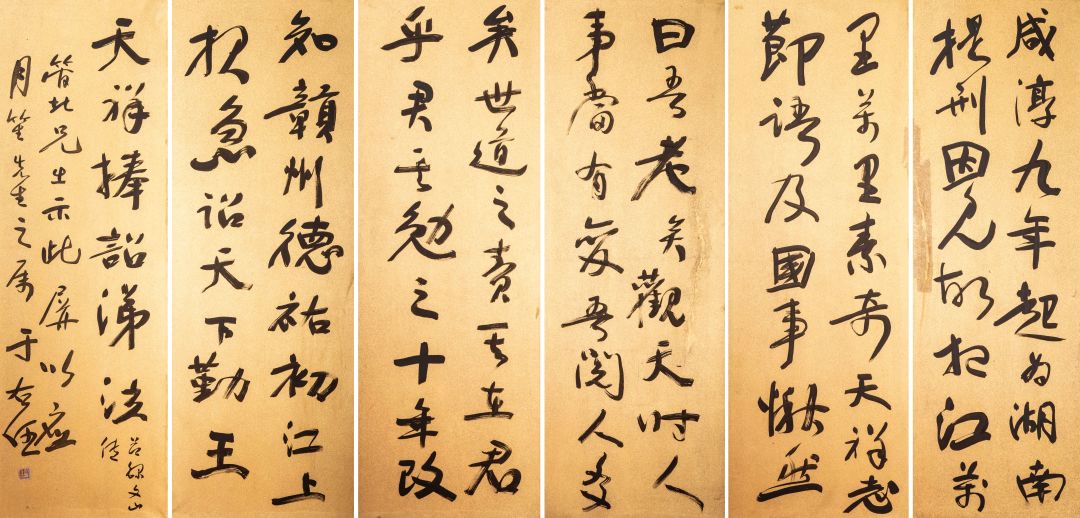 咸淳九年起为湖南
提刑因見故相江萬
里萬里素奇天祥志
節語及國事愀然
曰吾老矣觀天时人
事當有變吾閱人多
矣世道之責其在君
乎君其勉之十年改
知贛州德祐初江上
报急詔天下勤王
天祥捧詔涕泣 节録文山
傳
管北兄出示此屏以應
月笙先生之属 于右任